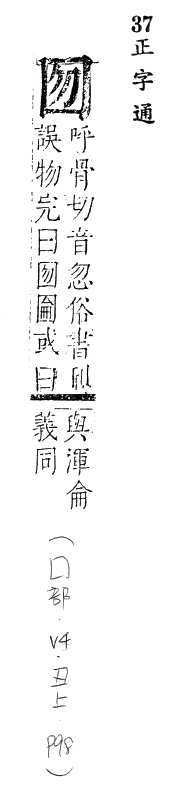 37正字通
囫
呼骨切音忽俗書
誤物完曰囫圇或曰
與渾侖
義同
(口部.V4.丑上.P98)